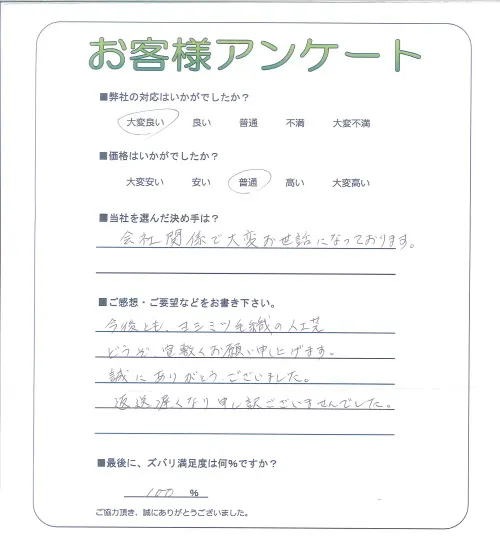 お客様アンケート
■弊社の対応はいかがでしたか？
大変良い 良い 普通 不満 大変不満
■価格はいかがでしたか？
大変安い 安い 普通 高い 大変高い
■当社を選んだ決め手は？
会社関係で大変お世話になっております。
■ご感想・ご要望などをお書き下さい。
今後とも、ヨシミツ毛織の人工芝
どうぞ 宜敷くお願い申し上げます。
誠にありがとうございました。
返送遅くなり申し訳ございませんでした。
■最後に、ズバリ満足度は何%ですか？
100 %
ご協力頂き、誠にありがとうございました。